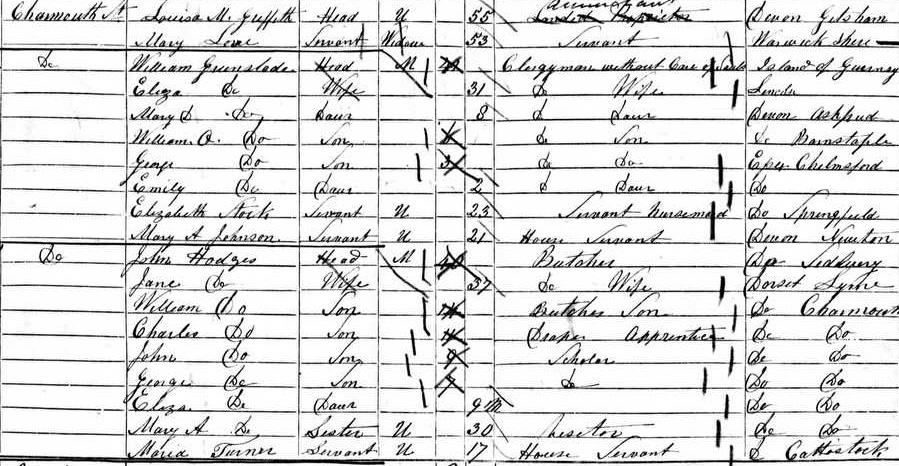 Annuitant
Charmouth St Louisa M. Griffith Head U 55 Landed Proprietor Devon Gitsham
Mary Love Servant Widow 53 Servant Warwick Shire
Do William Grenslade Head M Clergyman without Care of Souls Island of Guernsey
Eliza Do Wife 31 Do Wife Lincoln
Mary D Do Daur 8 d Daur Devon
William O. Do Son Do Son Do Barnstaple
George Do Son 3 Do Do Essex Chelmsford
Emily Do Daur 2 d Daur Do
Elizabeth Stock Servant U 23 Servant Nursemaid Do Springfield
Mary A Johnson Servant U 21 House Servant Devon Newton
Do John Hodges Head M 40 Butcher Do Sidbury
Jane Do Wife 37 Do Wife Dorset Lyme
William Do Son Butchers Son Do Charmouth
Charles Do Son Draper Apprentice Do Do
John Do Son 9 Scholar Do Do
George Do Son 7 Do Do Do
Eliza Do Daur 9 m Do Do
Mary A Do Sister U 30 Visitor Do Do
Maria Turner Servant U 17 House Servant D Cattostock